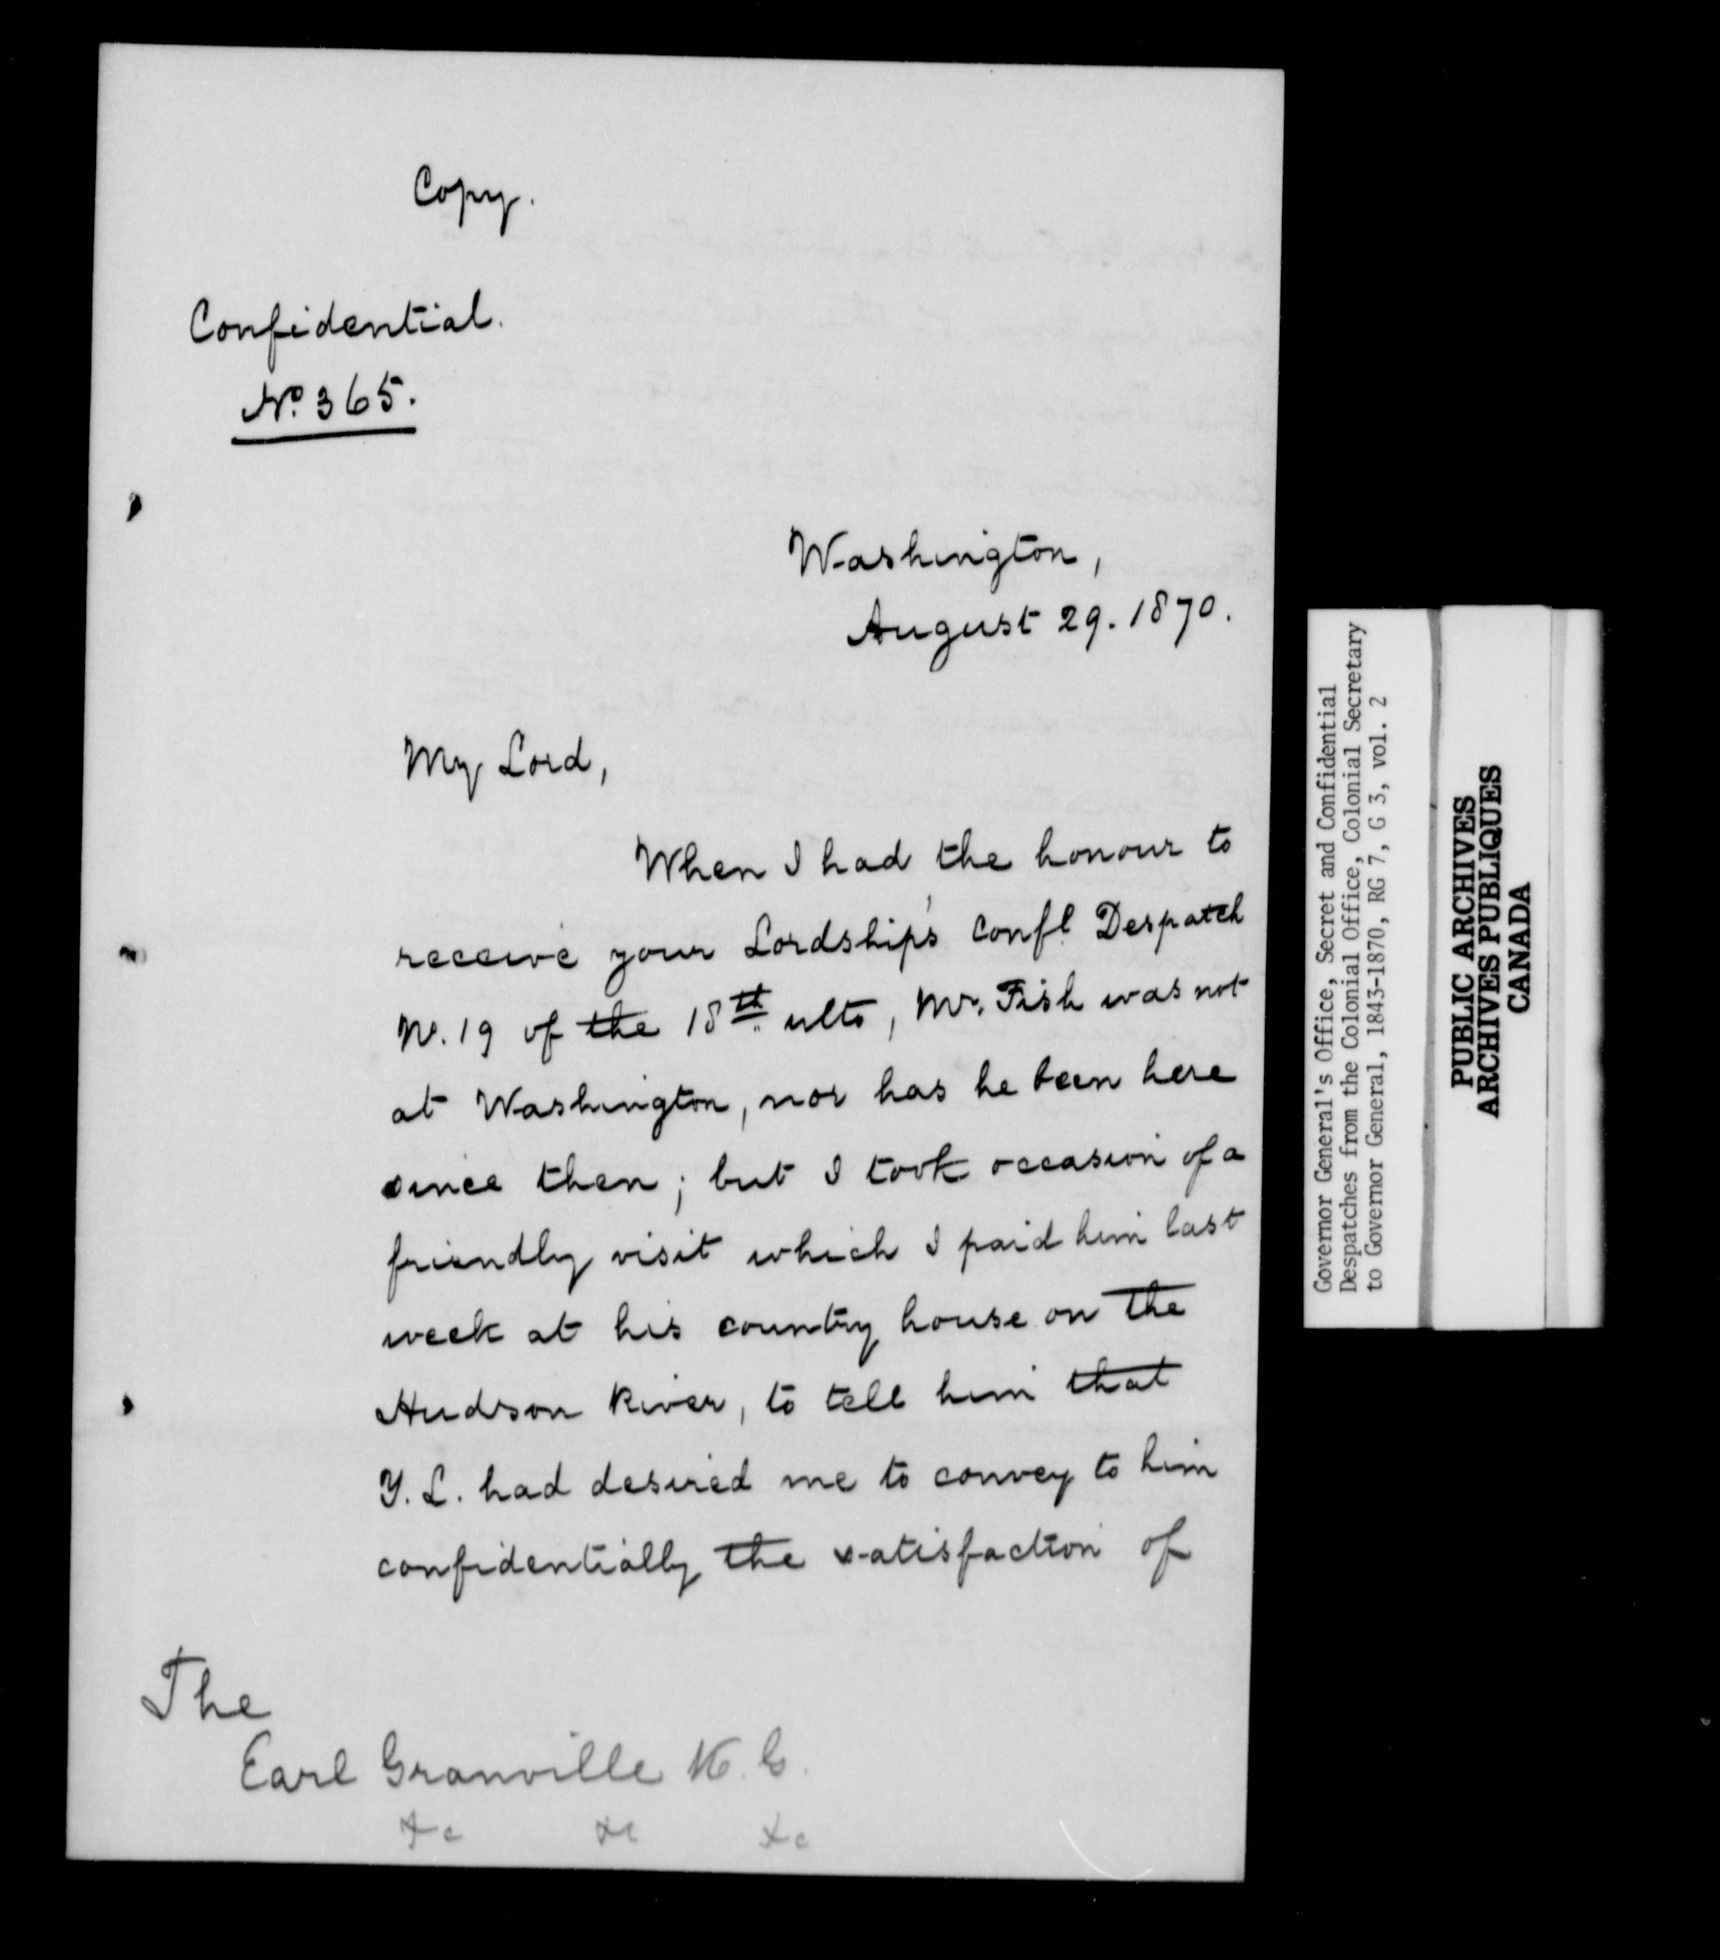 Copy.
Confidential.
No. 365.
Washington,
August 29. 1870.
My Lord,
When I had the honour to
receive your Lordship's Confl. Despatch
No. 19 of the 18th. ulto, Mr. Fish was not
at Washington, nor has he been here
since then; but I took occasion of a
friendly visit which I paid him last
week at his country house on the
Hudson River, to tell him that
Y. L. had desired me to convey to him
confidentially the satisfaction of
The
Earl Granville K. G.
&c &c &c
Governor General's Office, Secret and Confidential
Despatches from the Colonial Office, Colonial Secretary
to Governor General, 1843-1870, RG 7, G 3, vol. 2
PUBLIC ARCHIVES
ARCHIVES PUBLIQUES
CANADA